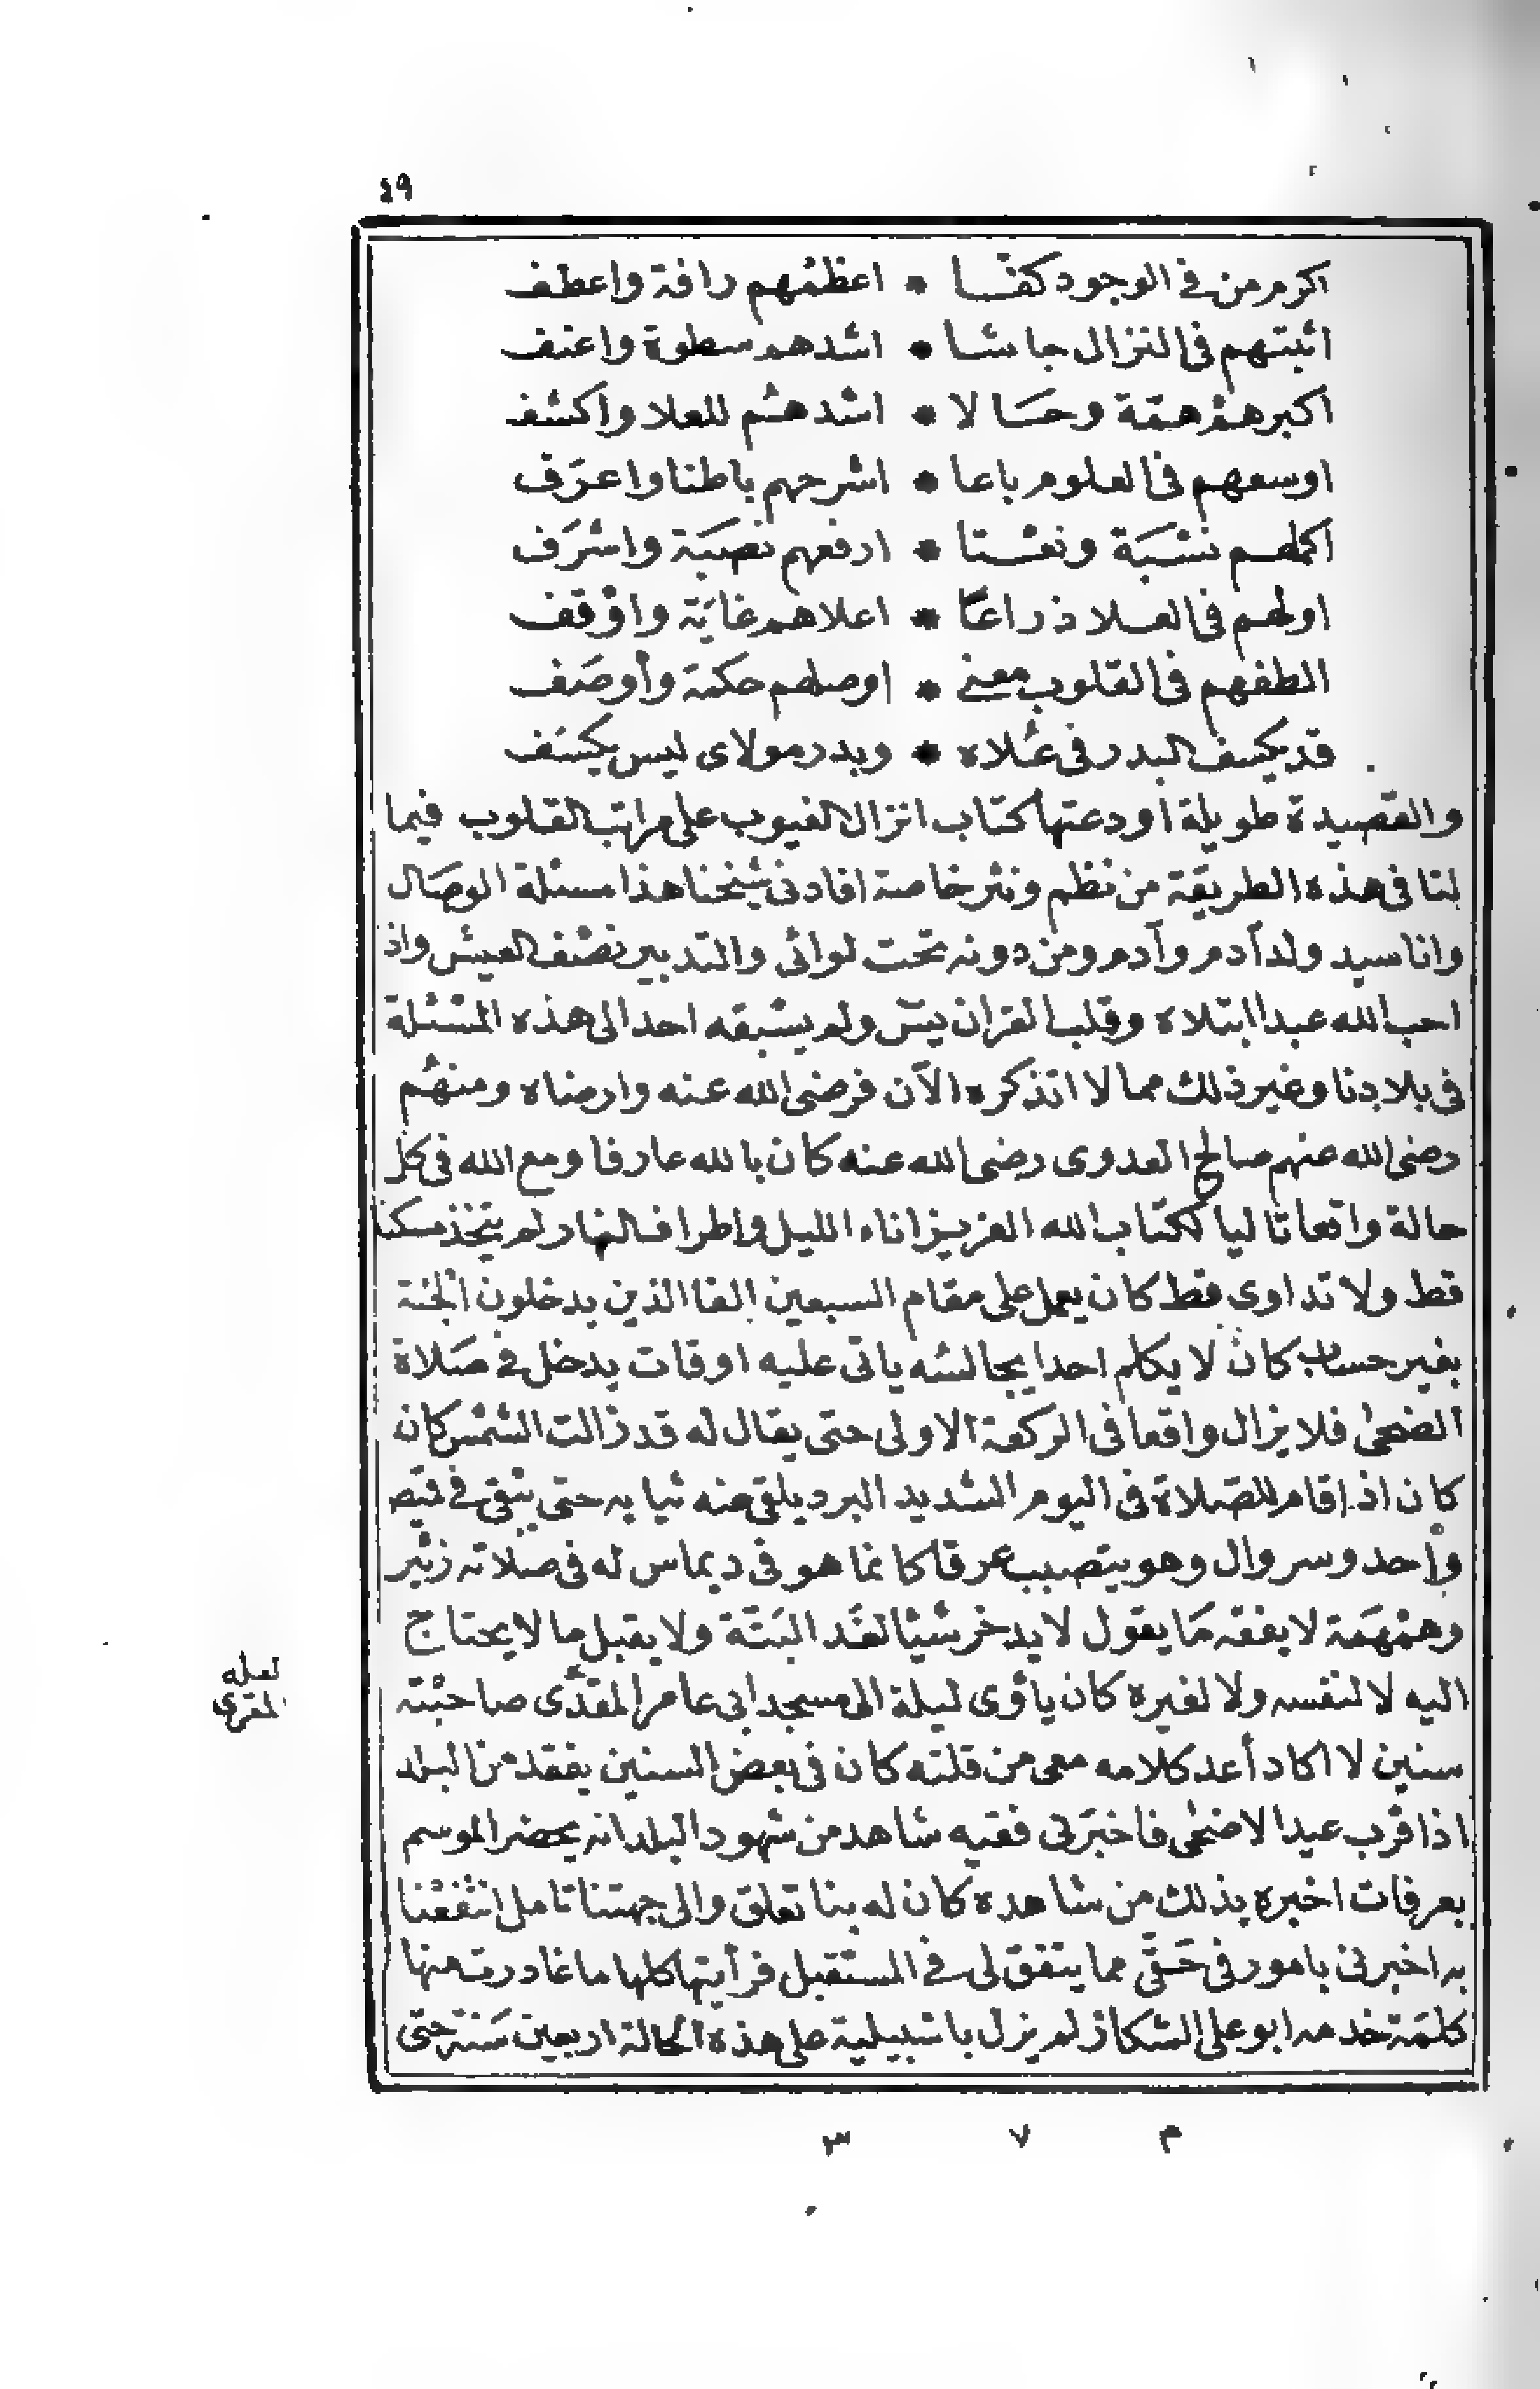 ٤٩
اكرم من في الوجود كفا * اعظمهم رافة واعطف
اثبتهم في النزال جاشا * اشدهم سطوة واعنف
اكبرهم همة وحالا * اشدهم للعلا واكشف
اوسعهم في العلوم باعا * اشرحهم باطنا واعرف
اكملهم نسبة ونعتا * ارفعهم نصبة واشرف
اولهم في العلا ذراعا * اعلاهم غاية واوقف
الطفهم في القلوب معنى * اوصلهم حكمة وأوصف
قد يكسف البدر في علاه * وبدر مولاى ليس يكسف
والقصيدة طويلة اودعتها كتاب انزال الغيوب على مراتب القلوب فيما
لنا في هذه الطريقة من نظم ونثر خاصة افادنى شيخنا هذا مسئلة الوصال
وانا سيد ولد آدم وآدم ومن دونه تحت لوائى والتدبير نصف العيش واذ
احب الله عبدا ابتلاه وقلب القران يس ولم يسبقه احد الى هذه المسئلة
في بلادنا وغير ذلك مما لا اتذكره الآن فرضى الله عنه وارضاه ومنهم
رضى الله عنهم صالح العدوى رضى الله عنه كان بالله عارفا ومع الله في كل
حالة واقعا تاليا لكتاب الله العزيز اناء الليل واطراف النهار لم يتخذ مسكنا
قط ولا تداوى قط كان يعمل على مقام السبعين الفا الذين يدخلون الجنة
بغير حساب كان لا يكلم احدا يجالسه ياتى عليه اوقات يدخل في صلاة
الضحى فلا يزال واقعا في الركعة الاولى حتى يقال له قد زالت الشمس كان
كان اذا قام للصلاة في اليوم الشديد البرد يلقى عنه ثيابه حتى يبقى في قميص
واحد وسروال وهو يتصبب عرقا كانما هو في ديماس له في صلاته زئير
وهمهمة لا يفقه ما يقول لا يدخر شيئا لغد البتة ولا يقبل ما لا يحتاج
اليه لا لنفسه ولا لغيره كان ياوى ليلة الى مسجد ابى عامر المقدى صاحبته
لعله
المقرى
سنين لا اكاد أعد كلامه معى من قلته كان في بعض السنين يفقد من البلد
اذا قرب عيد الاضحى فاخبرنى فقيه شاهد من شهود البلد انه يحضر الموسم
بعرفات اخبره بذلك من شاهده كان له بنا تعلق والى جهتنا تامل انتفعنا
به اخبرنى بامور في حقى مما يتفق لى في المستقبل فرأيتها كلها ما غادر منها
كلمة خدمه ابو على الشكاز لم يزل باشبيلية على هذه الحالة اربعين سنة حتى
م ٧ ٣